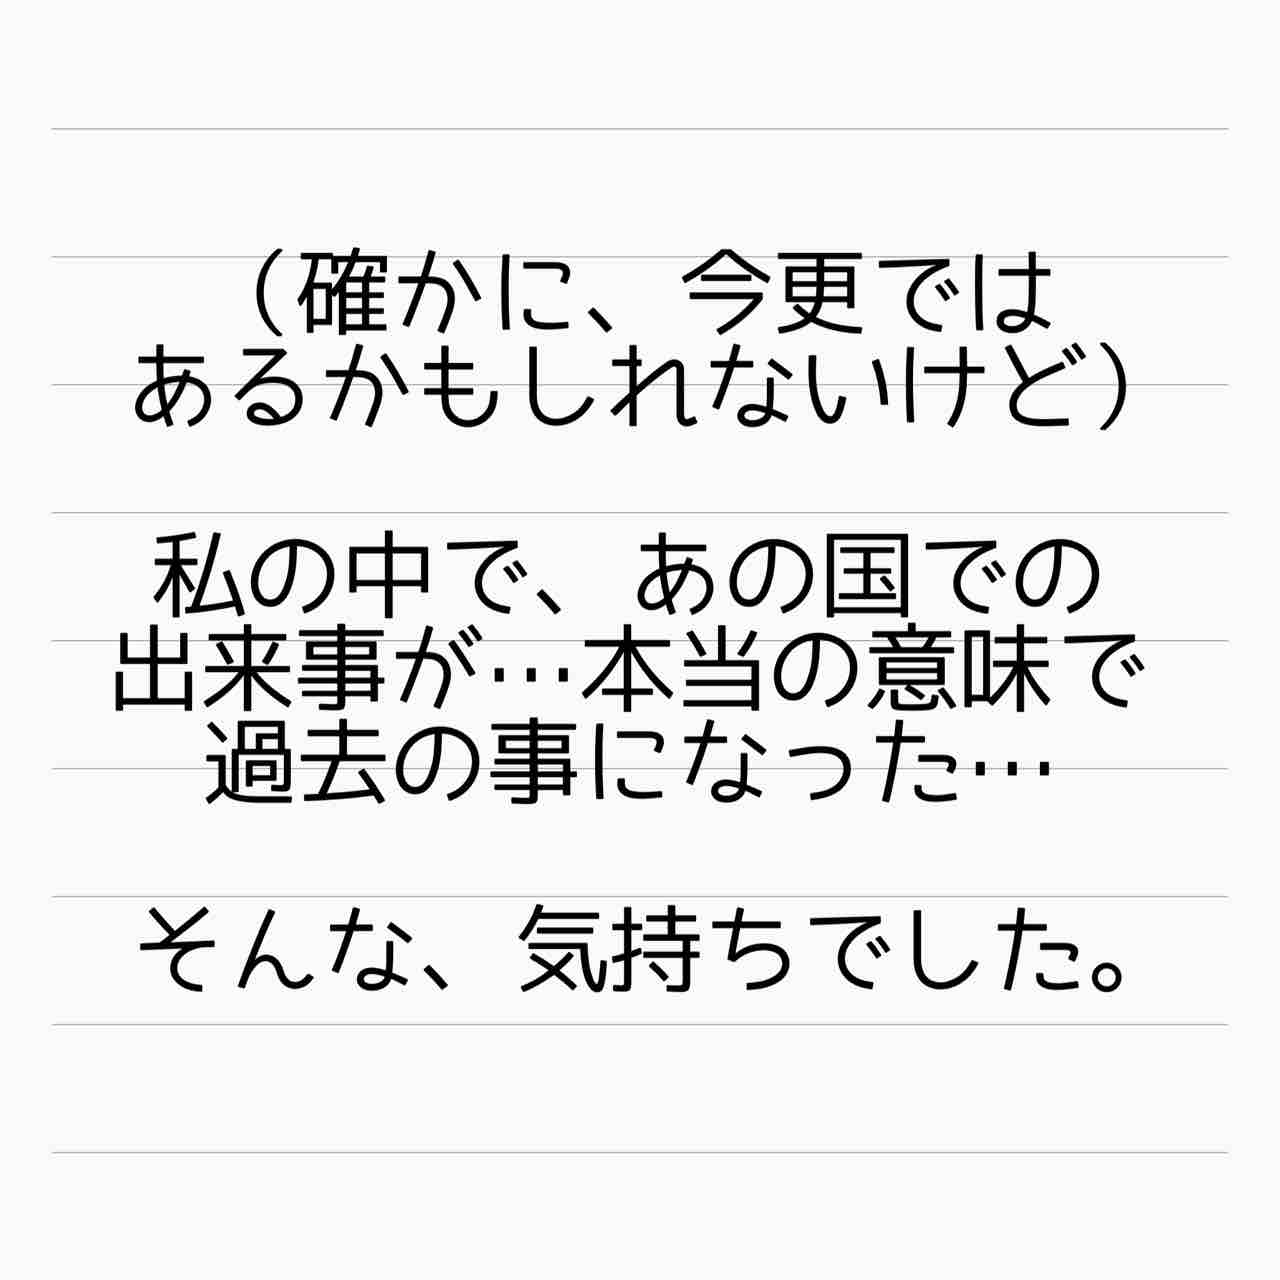 （確かに、今更では
あるかもしれないけど）
私の中で、あの国での
出来事が…本当の意味で
過去の事になった…
そんな、気持ちでした。